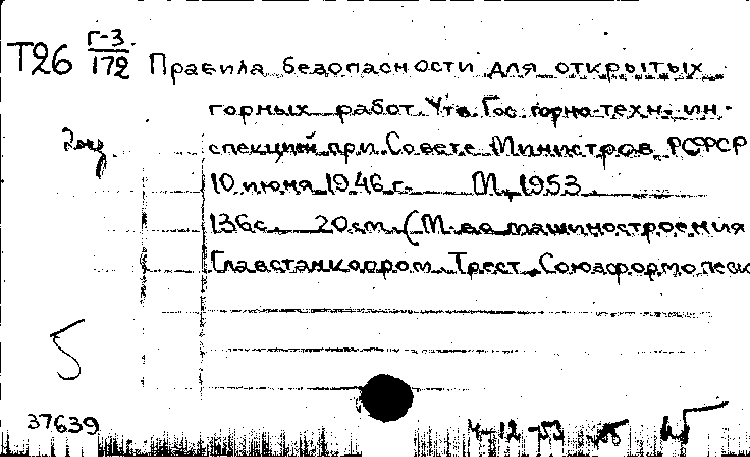 Т26 Г-3/172 Правила безопасности для открытых
горных работ. Утв. Гос. горно-техн. ин-
2 экз. спекцией при Совете Министров РСФСР
10 июня 1946 г. М., 1953.
136с. 20см. (М-во машиностроения
Главстанкопром. Трест "Союзформолеск
5
37639 4-12-53